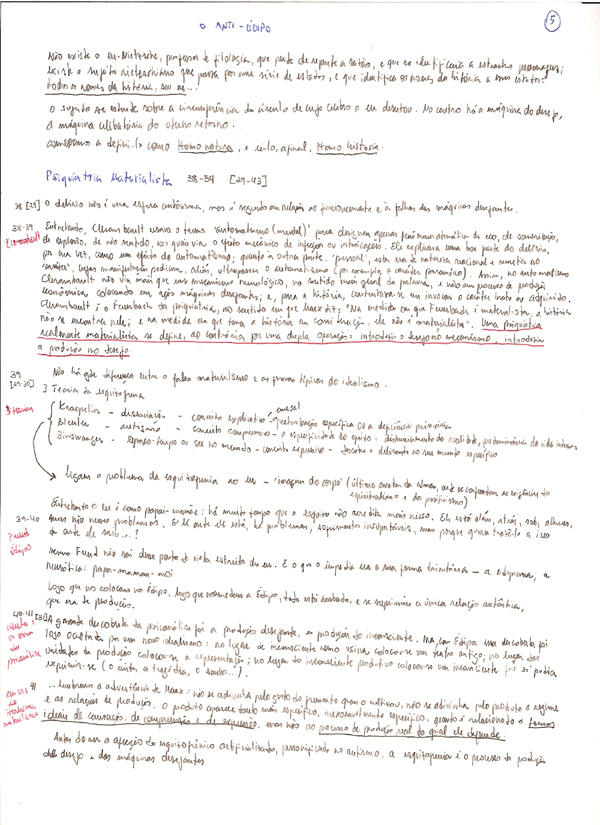 O ANTI-ÉDIPO
5
Não existe o eu-Nietzsche, professor de filologia, que perde de repente a razão, e que se identificaria a estranhos personagens;
existe o sujeito nietzschiano que passa por uma série de estados, e que identifica os nomes da história a esses estados:
todos os nomes da história, sou eu...!
O sujeito se estende sobre a circunferência do círculo de cujo centro o eu desertou. No centro há a máquina do desejo,
a máquina celibatária do eterno retorno.
como Homo natura, e ei-lo, afinal, Homo historia.
Psiquiatria Materialista 38-54 [29-43]
38 [29] O delírio não é uma esfera autônoma, mas é segundo em relação ao funcionamento e às falhas das máquinas desejantes.
38-39 Entretanto, Clerambault usava o termo 'automatismo (mental)' para designar apenas fenômenos atemáticos de eco, de sonorização,
Clerambault
de explosão, de não sentido, nos quais via o efeito mecânico de infecções ou intoxicações. Ele explicava uma boa parte do delírio,
por sua vez, como um efeito do automatismo; quanto à outra parte, 'pessoal', esta era de natureza reacional e remetia ao
'caráter', cujas manifestações podiam, aliás, ultrapassar o automatismo (por exemplo, o caráter paranóico). Assim, no automatismo
Clerambault não via mais que um mecanismo neurológico, no sentido mais geral da palavra, e não um processo de produção
econômica, colocando em ação máquinas desejantes; e, para a história, contentava-se em invocar o caráter inato ou adquirido.
Clerambault é o Feuerbach da psiquiatria, no sentido em que Marx diz: "Na medida em que Feuerbach é materialista, a história
não se encontra nele; e na medida em que toma a história em consideração, ele não é materialista". Uma psiquiatria
realmente materialista se define, ao contrário por uma dupla operação: introduzir o desejo no mecanismo, introduzir
a produção no desejo.
39 Não há diferença entre o falso materialismo e as provas típicas do idealismo.
[29-30] 3 Teorias da esquizofrenia
Kraepelin - dissociação - conceito explicativo - causal perturbação específica ou a deficiência primária
Bleuler - autismo - conceito compreensivo - a especificidade do efeito - distanciamento da realidade, predominância da vida interior
Binswanger - espaço-tempo ou ser no mundo - conceito expressivo - descobre o delirante no seu mundo específico
ligam o problema da esquizofrenia ao eu - 'imagem do corpo' (último avatar da alma, onde se confundem as exigências do
espiritualismo e do positivismo)
Entretanto o eu é como papai-mamãe: há muito tempo que o esquizo não acredita mais nisso. Ele está além, atrás, sob, alhures,
39-40 mas não nesses problemas. E lá onde ele está, há problemas, sofrimentos insuportáveis, mas porque querer trazê-lo a isso
de onde ele saiu...!
Freud
Édipo
Mesmo Freud não sai desse ponto de vista estreito do eu. E o que o impedia era a sua forma trinitária - a edipiana, a
neurótica: papai-mamãe-moi
Logo que nos colocam no Édipo, logo que nos medem a Édipo, tudo está acabado, e se suprimiu a única relação autêntica,
que era de produção.
40-41 A grande descoberta da psicanálise foi a produção desejante, as produções do inconsciente. Mas, com Édipo essa descoberta foi
logo ocultada por um novo idealismo: no lugar do inconsciente como usina colocou-se um teatro antigo; no lugar das
unidades de produção colocou-se a representação; no lugar do inconsciente produtivo colocou-se um inconsciente que só podia
exprimir-se (o mito, a tragédia, o sonho...).
41 ... lembramos a advertência de Marx: não se adivinha pelo gosto do frumento quem o cultivou, não se adivinha pelo produto o regime
e as relações de produção. O produto aparece tanto mais específico, inexoravelmente específico, quando é relacionado a formas
ideais de causação, de compreensão e de expressão, mas não ao processo de produção real do qual ele depende.
Antes de ser a afecção do esquizofrênico artificializado, personificado no autismo, a esquizofrenia é o processo da produção
do desejo e das máquinas desejantes